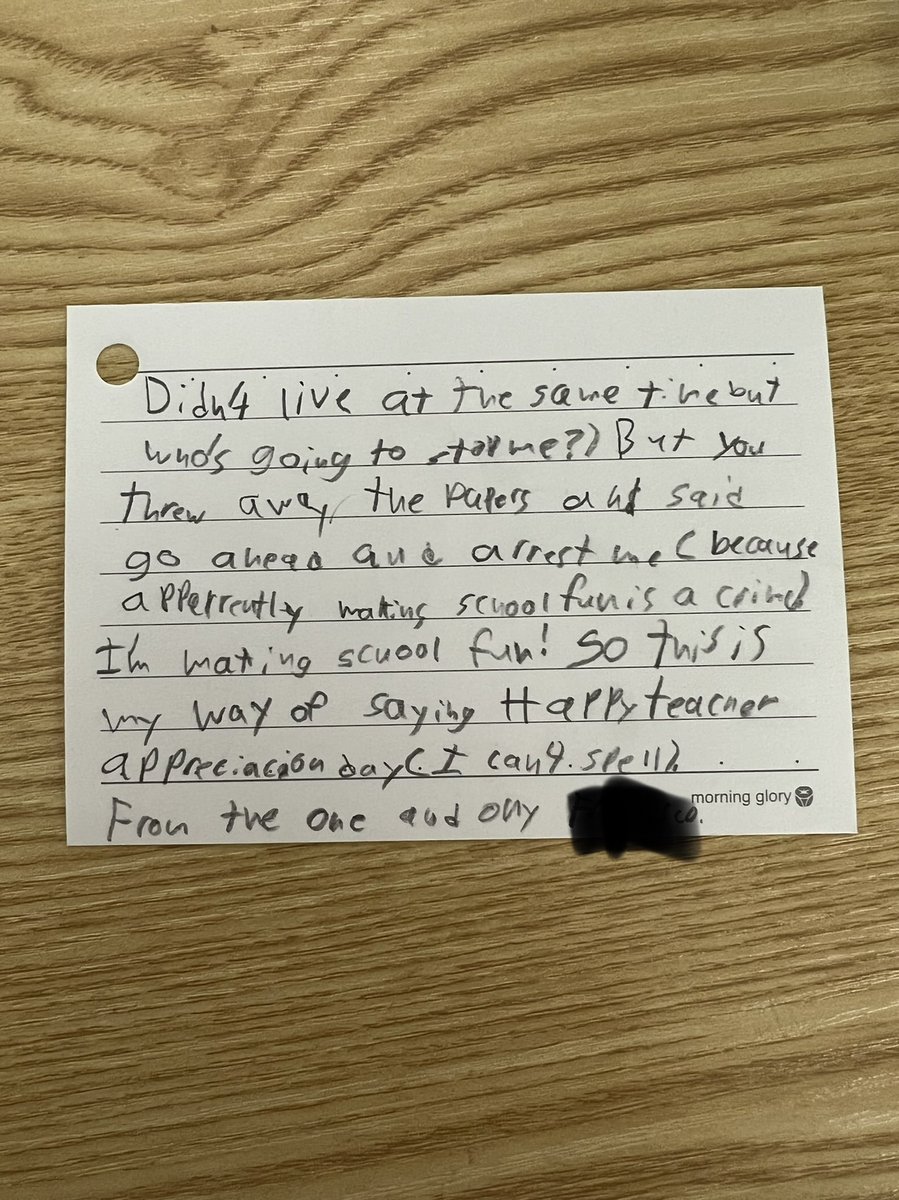 Didn4 live at the same time but
who's going to stop me?) But you
threw away the papers and said
go ahead and arrest me (because
apperrently making school fun is a crime)
I'm making school fun! So this is
my way of saying Happy teacher
appreciacion day (I can4 spell).
From the one and only
morning glory